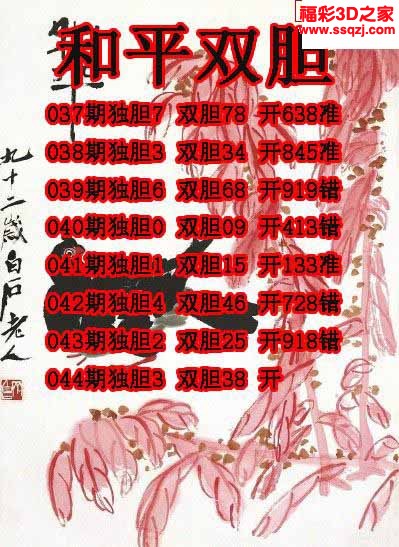 福彩3D之家
www.ssqzj.com
和平双胆
037期独胆7 双胆78 开638准
038期独胆3 双胆34 开845准
039期独胆6 双胆68 开919错
040期独胆0 双胆09 开413错
041期独胆1 双胆15 开133准
042期独胆4 双胆46 开728错
043期独胆2 双胆25 开918错
044期独胆3 双胆38 开
九十二岁白石老人